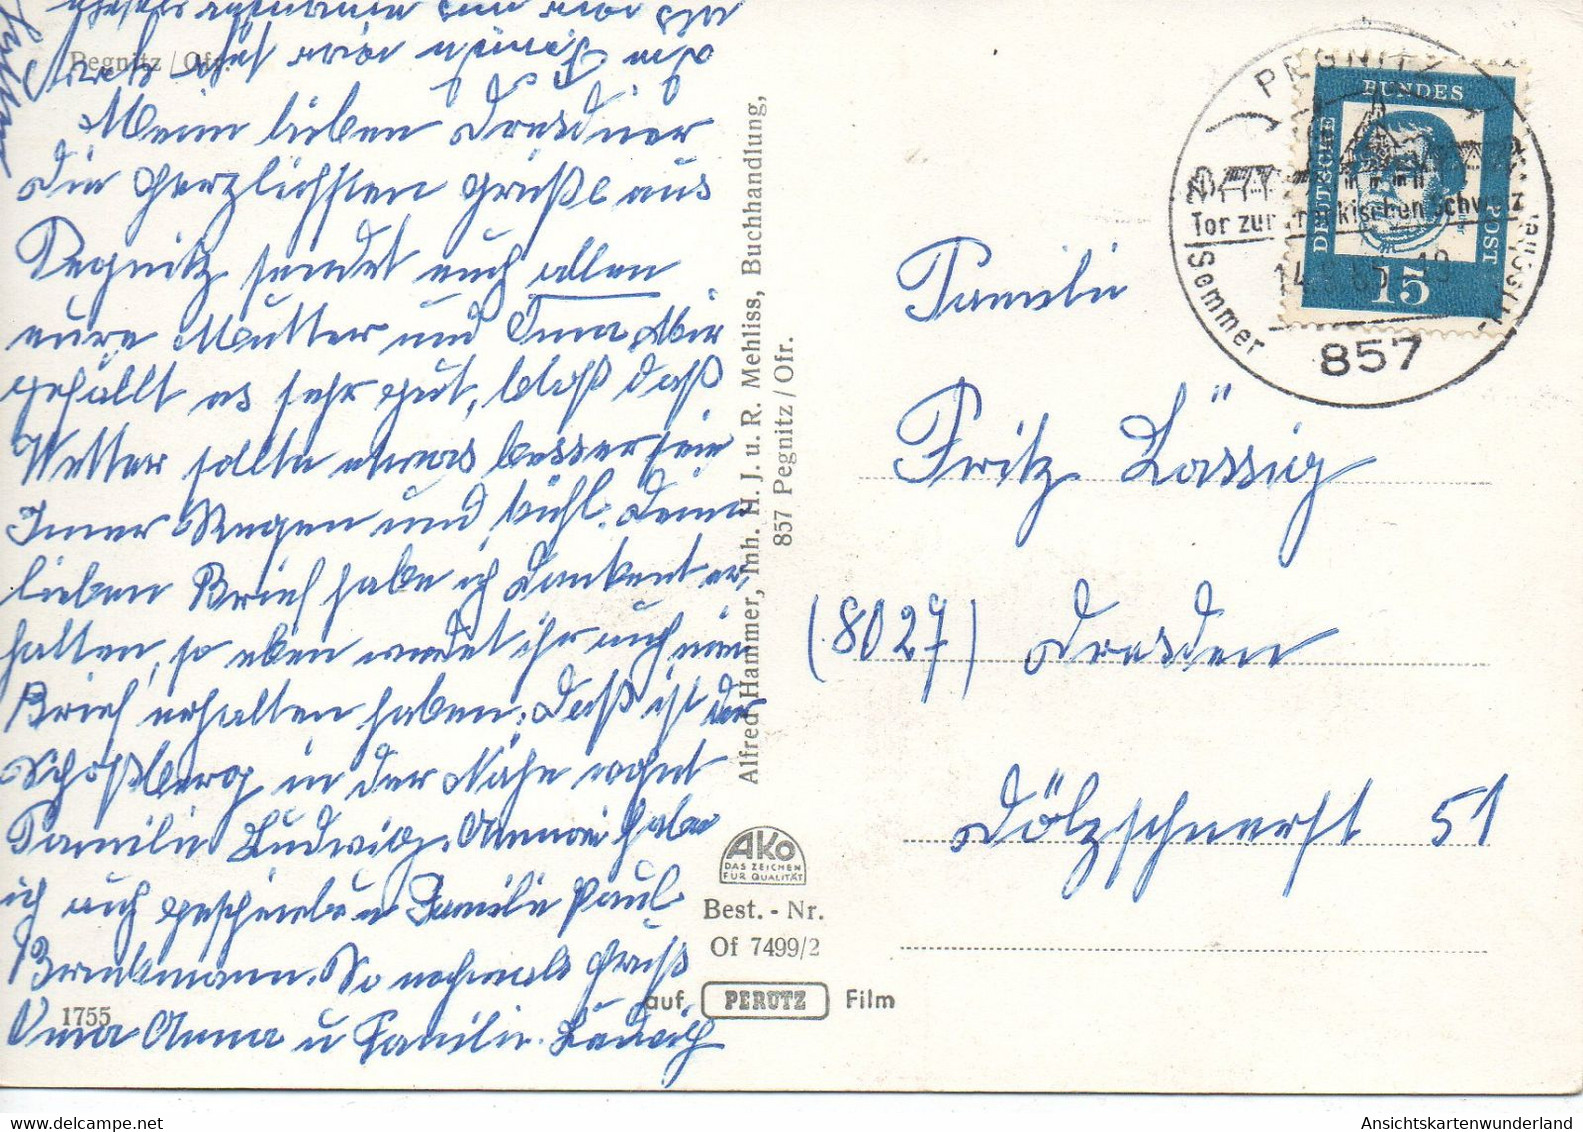 Pegnitz / Ofr.
Mein lieben Dresdner
Die herzlichsten Grüße aus
Pegnitz sendet euch allen
eure Mutter und Oma. Mir
gefällt es sehr gut, bloß daß
Wetter sollte etwas besser sein
Imer Regen und kühl. Deine
lieben Brief habe ich dankent er,
halten, so eben werdet ihr auch mein
Brief erhalten haben. Daß ist der
Schoßberg in der Nähe wohnt
Familie Ludwig. Annari habe
ich auch geschrieben Familie Paul
Brinkmann. So nochmals Gruß
Oma Anna u Familie. Ludwig
1755
Alfred Hammer, Inh. H. J. u. R. Mehliss, Buchhandlung,
857 Pegnitz / Ofr.
AKO
DAS ZEICHEN
FÜR QUALITÄT
Best. - Nr.
Of 7499/2
auf PERUTZ Film
PEGNITZ
Tor zur Fränkischen Schweiz
Sommer
857
DEUTSCHE BUNDES POST
15
Familie
Fritz Lässig
(8027) Dresden
Dölzschnerst 51
Ansichtskartenwunderland